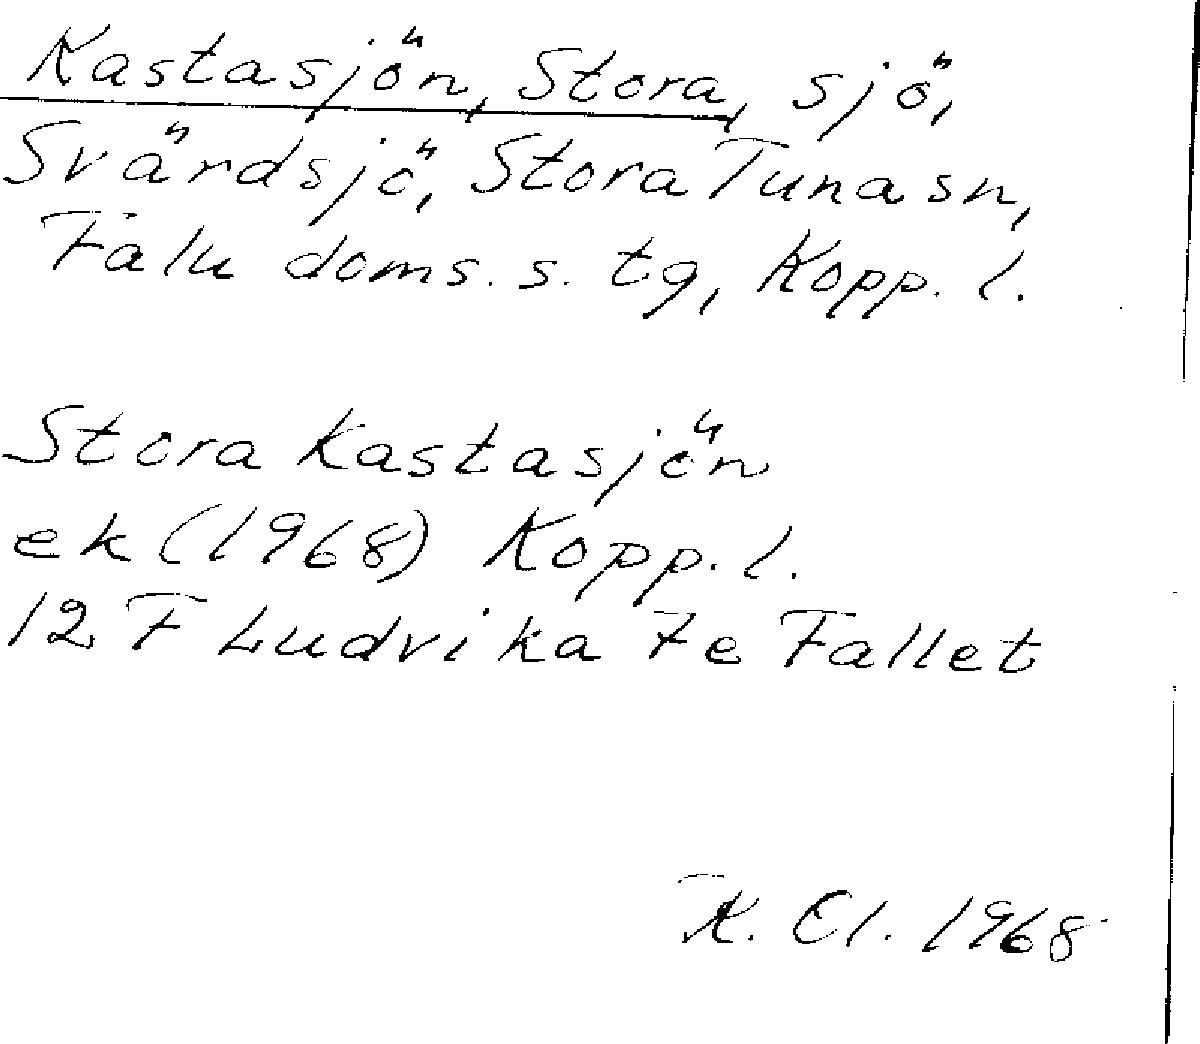 Kastasjön, Stora, sjö,
Svärdsjö, Stora Tuna sn,
Falu doms. s. tg, Kopp. l.
Stora Kastasjön
ek (1968) Kopp. l.
12 F Ludvika 7e Fallet
K. El. 1968